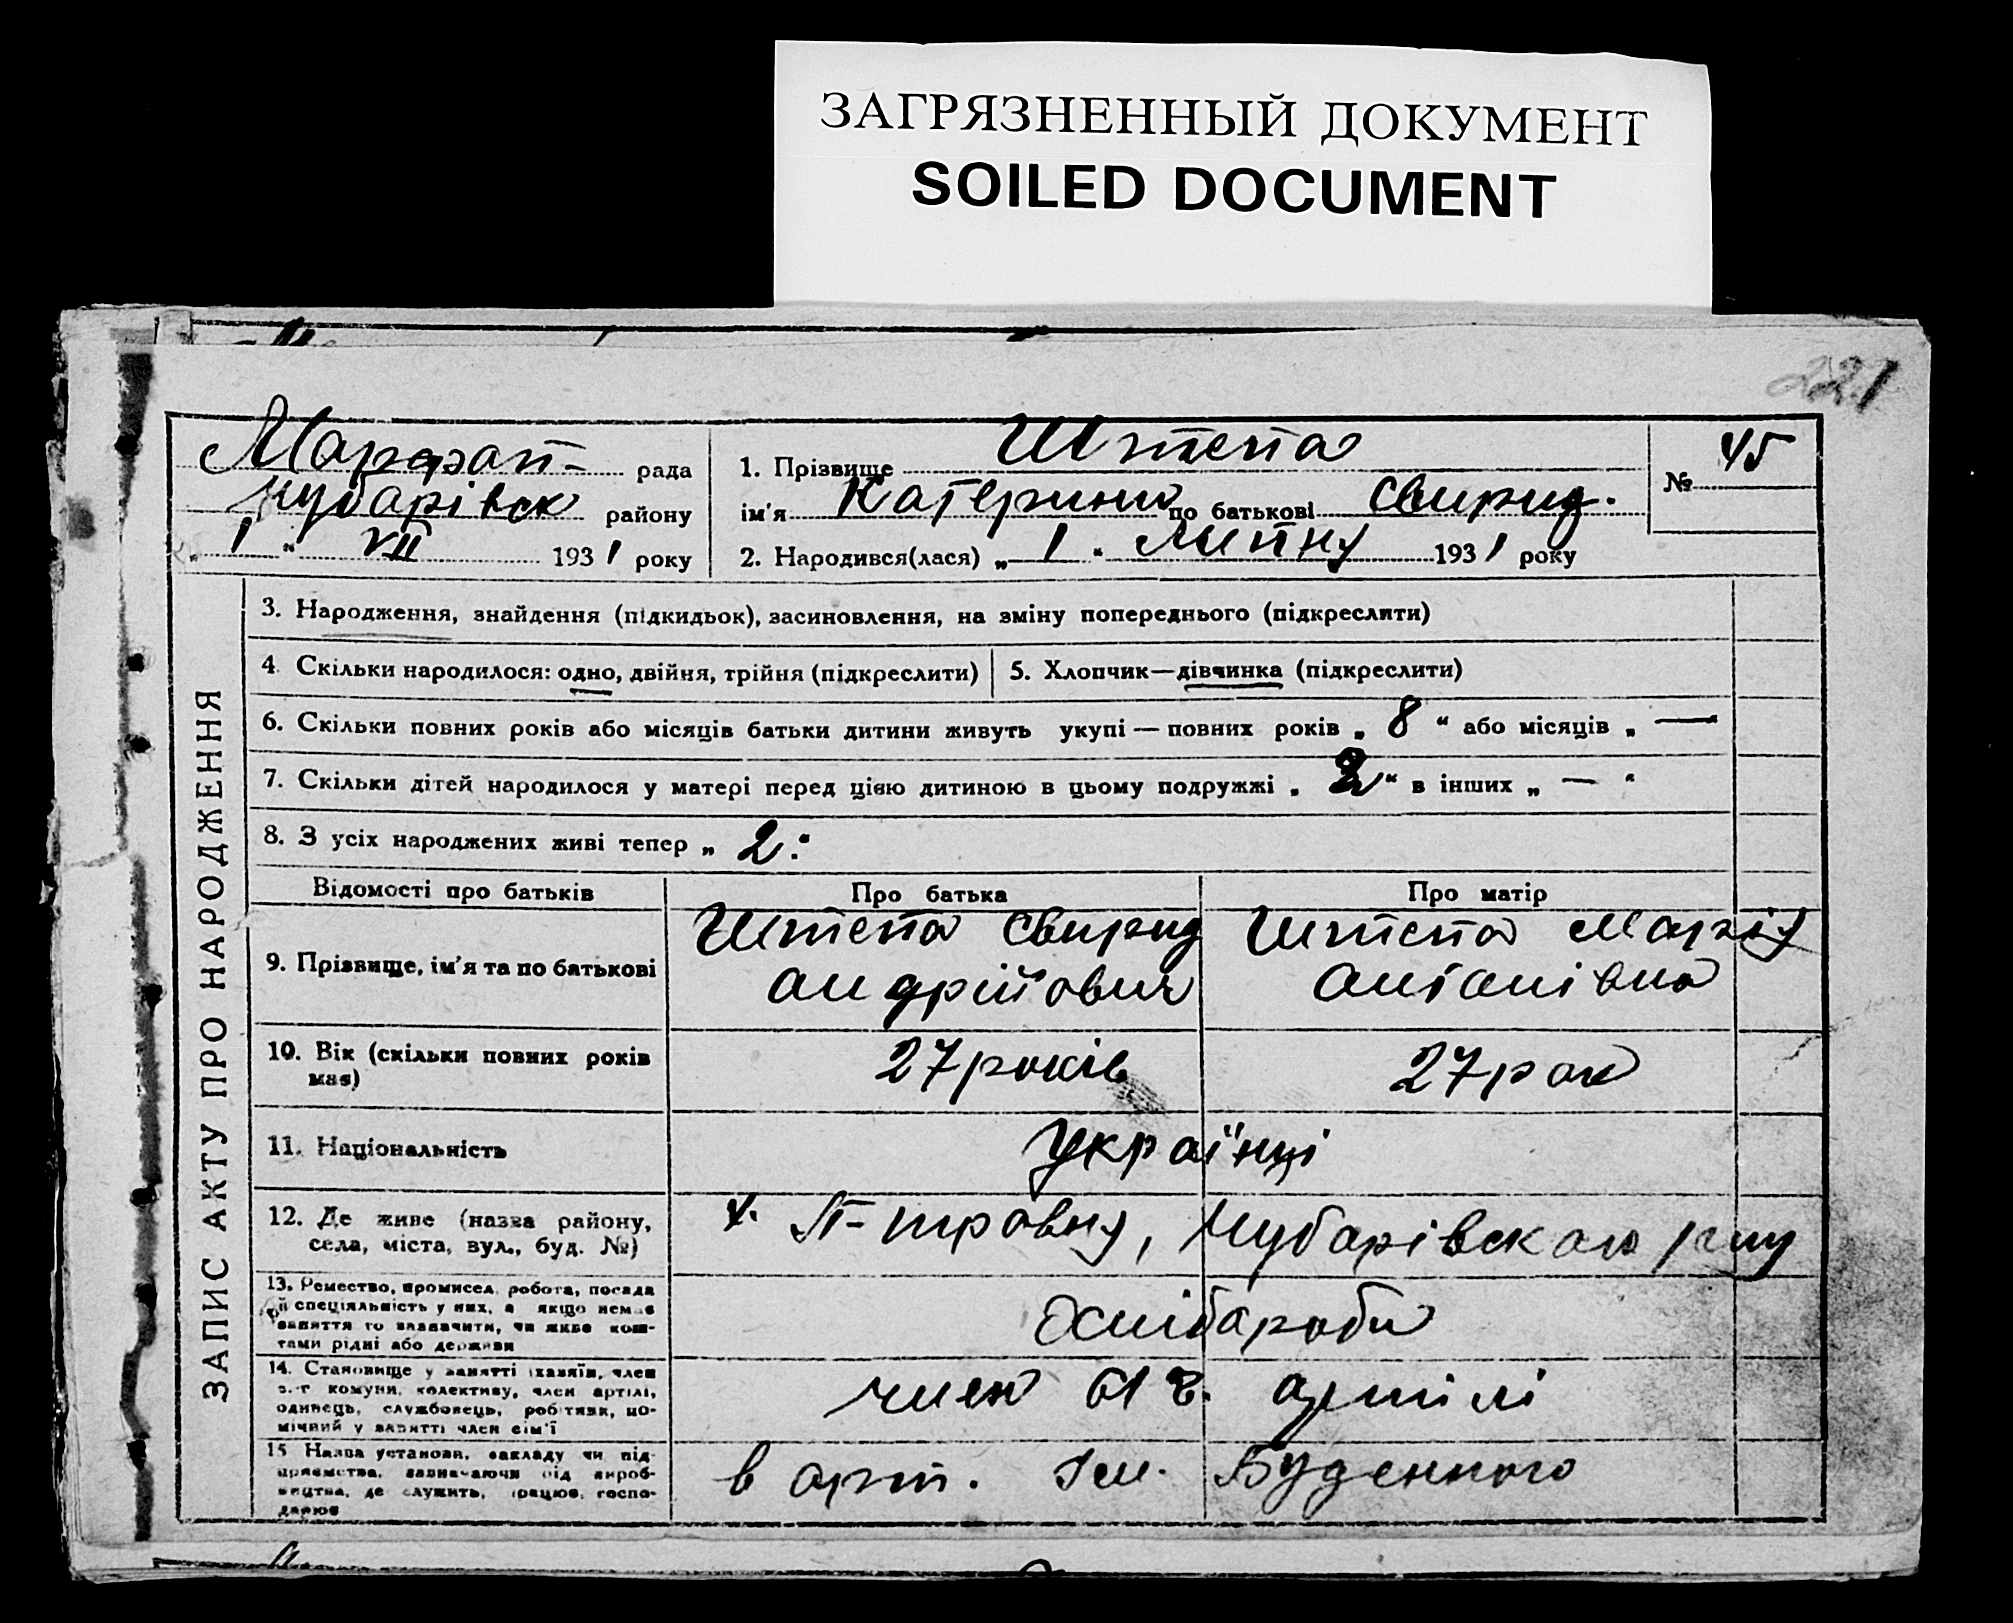 ЗАГРЯЗНЕННЫЙ ДОКУМЕНТ
SOILED DOCUMENT
221
ЗАПИС АКТУ ПРО НАРОДЖЕННЯ
рада
Чубарівск району
"1" VII 1931 року
1. Прізвище Штепа
ім'я Катерина по батькові Свирид.
2. Народився(лася) „1" Липня 1931 року
№ 45
3. Народження, знайдення (підкидьок), засиновлення, на зміну попереднього (підкреслити)
4. Скільки народилося: одно, двійня, трійня (підкреслити)
5. Хлопчик—дівчинка (підкреслити)
6. Скільки повних років або місяців батьки дитини живуть укупі — повних років „8" або місяців „—
7. Скільки дітей народилося у матері перед цією дитиною в цьому подружжі „2" в інших „—"
8. З усіх народжених живі тепер „2"
Відомості про батьків
Про батька
Про матір
9. Прізвище, ім'я та по батькові
Штепа Свирид
Андрійович
Штепа Марія
10. Вік (скільки повних років
має)
27 років
27 рок
11. Національність
Українці
12. Де живе (назва району,
села, міста, вул., буд. №)
Чубарівского р-ну
13. Ремество, промисел, робота, посада
й спеціяльність у них, а якщо немає
заняття то зазначити, чи живе кош-
тами рідні або держави
Хліборобы
14. Становище у занятті (хазяїн, член
с.-г комуни, колективу, член артілі,
одинець, службовець, робітник, по-
мічний у занятті член сім'ї
член артілі
15 Назва установи, закладу чи під-
приємства, зазначаючи рід вироб-
ництва, де служить, працює, госпо-
дарює
в арт. Ім. Буденного